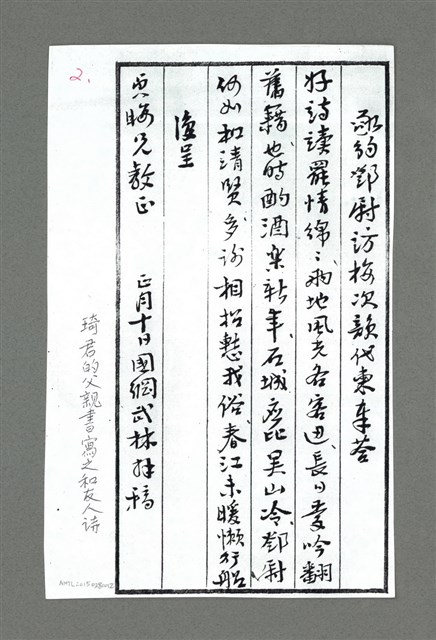 2.
承約鄧尉访梅次韻代柬奉答
好詩讀罷情綿ヽ兩地風光各客邊長日愛吟翻
舊籍也時酌酒樂新年石城應比吴山冷鄧尉
何如和清賢多謝相招慙我俗春江未暖懶行船
呈
貞晦兄教正 正月十日國綱武林拜稿
琦君的父親書寫之和友人詩